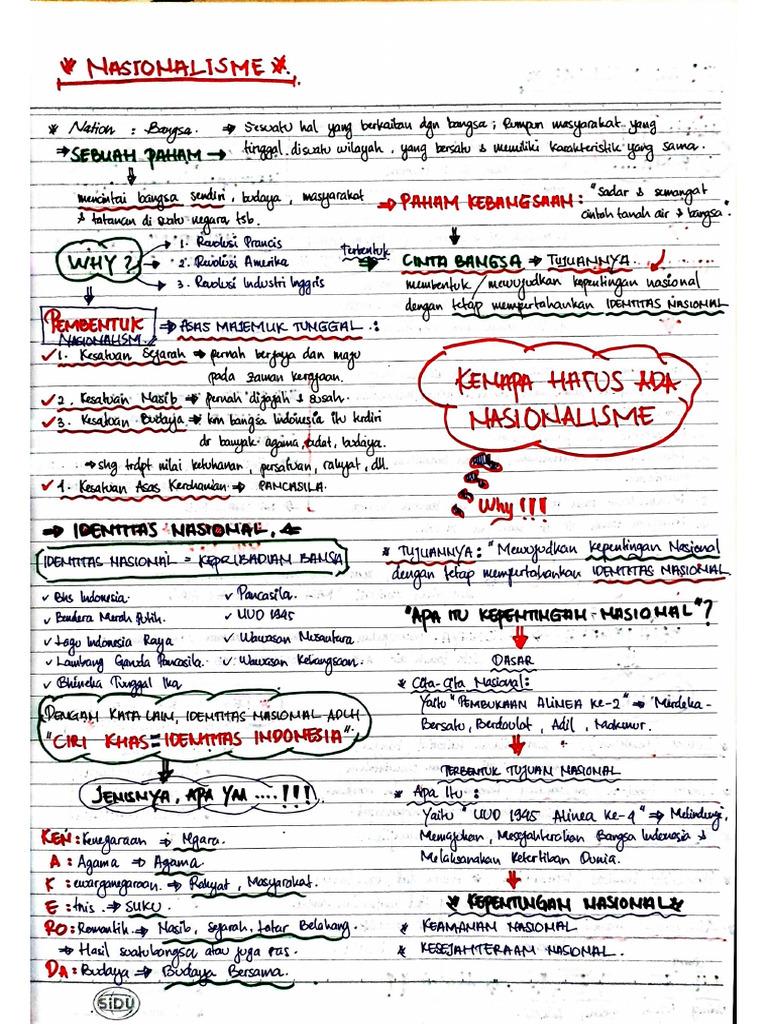 * NASIONALISME *.
* Nation : Bangsa. ⇒ Sesuatu hal yang berkaitan dgn bangsa ; Rumpun masyarakat yang
⇒ SEBUAH PAHAM → tinggal disuatu wilayah, yang bersatu & memiliki karakteristik yang sama.
mencintai bangsa sendiri, budaya, masyarakat
& tatanan di suatu negara tsb.
⇒ PAHAM KEBANGSAAN : "sadar & semangat
cintoh tanah air & bangsa."
WHY ?
→ 1. Revolusi Prancis
→ 2. Revolusi Amerika
→ 3. Revolusi Industri Inggris
Terbentuk
⇒ CINTA BANGSA → TUJUANNYA
membentuk / mewujudkan kepentingan nasional
dengan tetap mempertahankan IDENTITAS NASIONAL
PEMBENTUK
NASIONALISM.
⇒ ASAS MAJEMUK TUNGGAL :
✓ 1. Kesatuan Sejarah ⇒ pernah berjaya dan maju
pada zaman kerajaan.
✓ 2. Kesatuan Nasib ⇒ pernah dijajah & susah.
✓ 3. Kesatuan Budaya ⇒ krn bangsa Indonesia itu trdiri
dr banyak agama, adat, budaya.
⇒ shg trdpt nilai ketuhanan, persatuan, rakyat, dll.
✓ 4. Kesatuan Asas Kerohanian ⇒ PANCASILA.
KENAPA HATUS ADA
NASIONALISME
Why !!!
⇒ IDENTITAS NASIONAL.
IDENTITAS NASIONAL = KEPRIBADIAN BANSA
✓ Bhs Indonesia.
✓ Bendera Merah Putih.
✓ Lagu Indonesia Raya
✓ Lambang Garuda Pancasila.
✓ Bhineka Tunggal Ika
✓ Pancasila.
✓ UUD 1945
✓ Wawasan Nusantara
✓ Wawasan Kebangsaan.
DENGAN KATA LAIN, IDENTITAS NASIONAL ADLH
"CIRI KHAS = IDENTITAS INDONESIA".
JENISNYA, APA YAA ....!!!
KEN : Kenegaraan ⇒ Ngara.
A : Agama ⇒ Agama.
K : ewarganegaraan ⇒ Rakyat, Masyarakat.
E : tnis ⇒ SUKU.
RO : Romantik ⇒ Nasib, sejarah, latar Belakang.
⇒ Hasil suatu bangsa atau juga ras.
DA : Budaya ⇒ Budaya Bersama.
* TUJUANNYA : "Mewujudkan Kepentingan Nasional
dengan tetap mempertahankan IDENTITAS NASIONAL
"APA ITU KEPENTINGAN NASIONAL"?
DASAR
* Cita-Cita Nasional :
Yaitu "PEMBUKAAN ALINEA Ke-2" ⇒ "Merdeka-
Bersatu, Berdaulat, Adil, Makmur.
TERBENTUK TUJUAN NASIONAL
* Apa Itu :
Yaitu "UUD 1945 Alinea Ke-4" ⇒ Melindungi,
Memajukan, Mesejahterakan Bangsa Indonesia &
Melaksanakan Ketertiban Dunia.
* KEPENTINGAN NASIONAL *
* KEAMANAN NASIONAL
* KESEJAHTERAAN NASIONAL.
SiDU